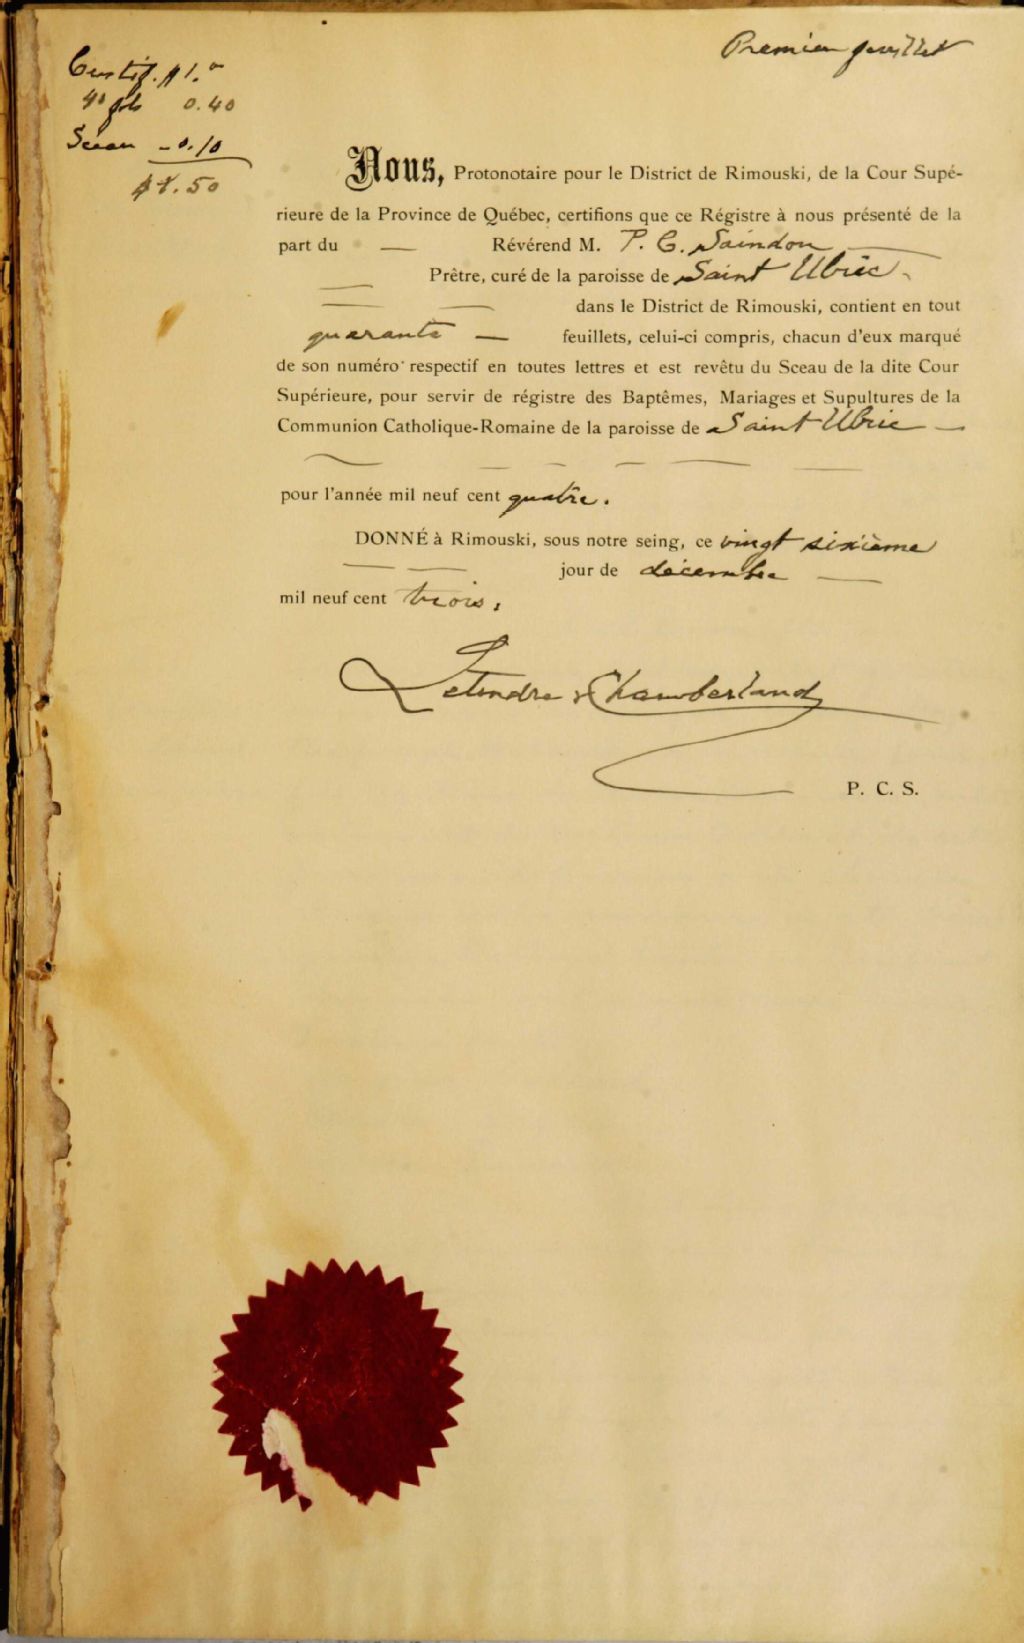 Premier feuillet
Certif. $1.00
40 fols 0.40
Sceau - 0.10
$1.50
Nous, Protonotaire pour le District de Rimouski, de la Cour Supé-
rieure de la Province de Québec, certifions que ce Régistre à nous présenté de la
part du — Révérend M. P. C. Saindon —
Prêtre, curé de la paroisse de Saint Ulric
dans le District de Rimouski, contient en tout
quarante — feuillets, celui-ci compris, chacun d'eux marqué
de son numéro respectif en toutes lettres et est revêtu du Sceau de la dite Cour
Supérieure, pour servir de régistre des Baptêmes, Mariages et Supultures de la
Communion Catholique-Romaine de la paroisse de Saint Ulric —
pour l'année mil neuf cent quatre.
DONNÉ à Rimouski, sous notre seing, ce vingt sixième
— — jour de décembre —
mil neuf cent trois.
Letendre & Chamberland
P. C. S.